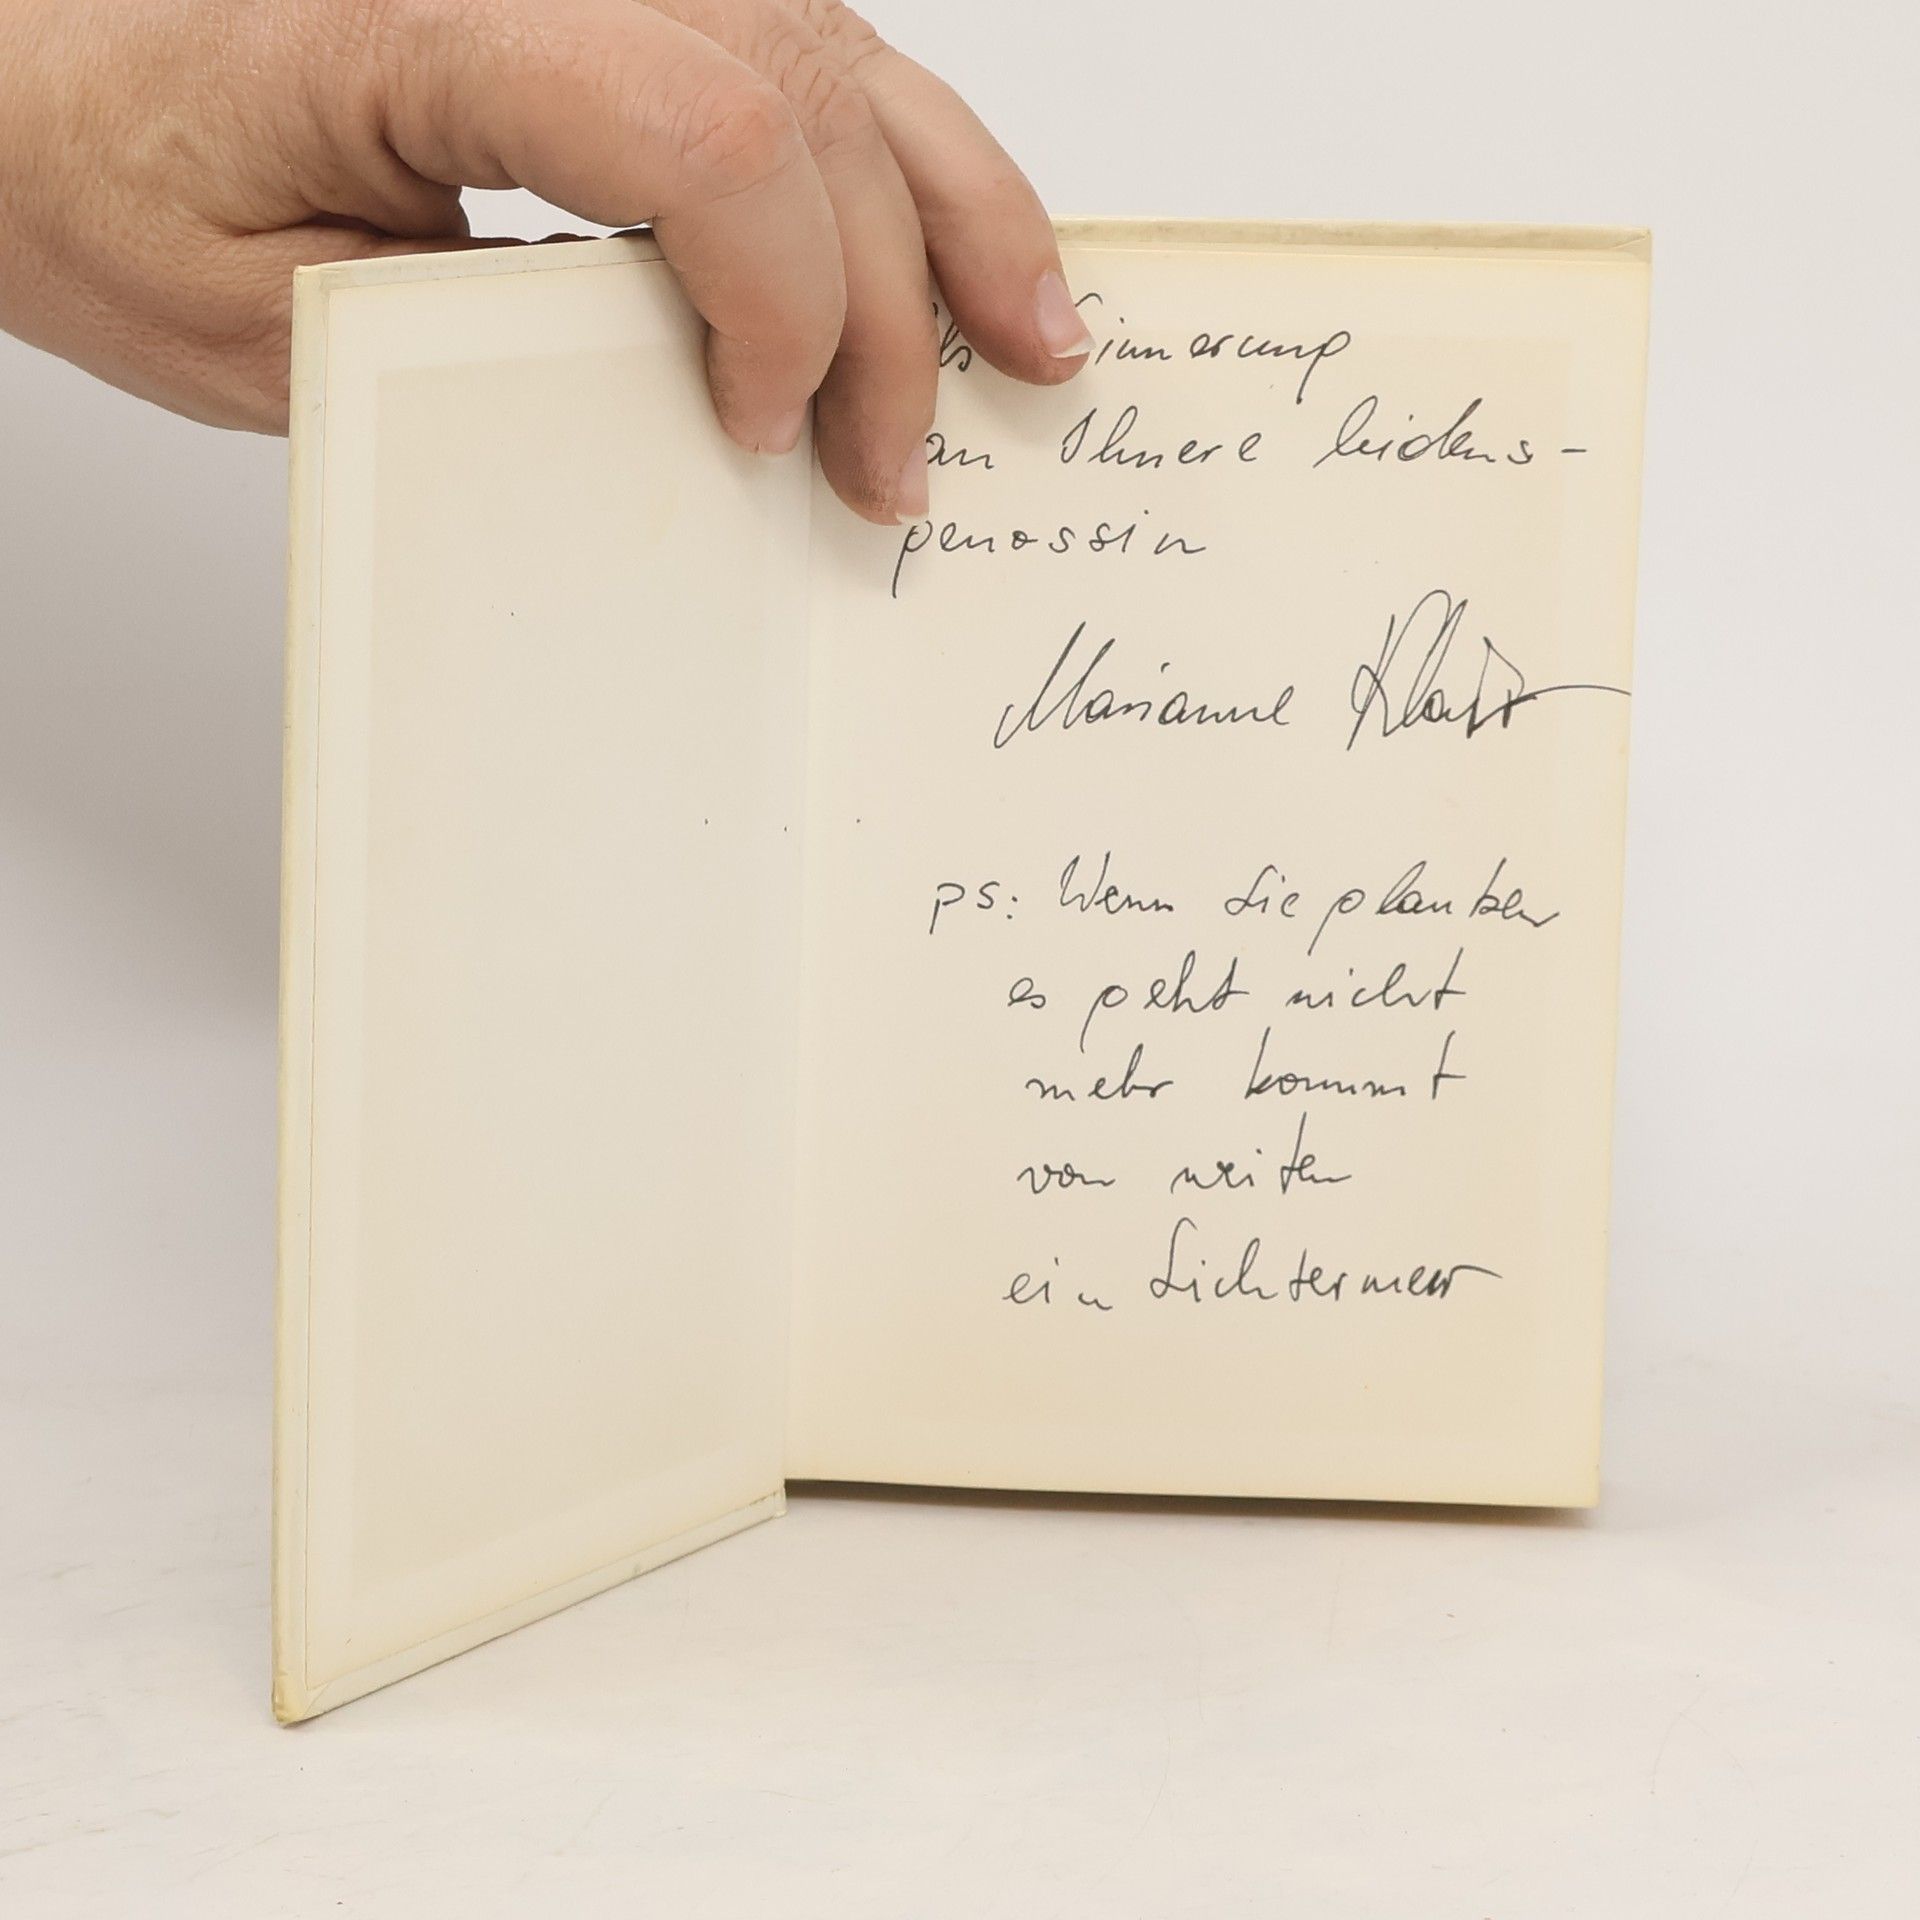 Erinnerung
an Ihnere leidens-
genossin
Marianne
ps: Wenn Sie glauben
es geht nicht
mehr kommt
von weiten
ein Lichtermeer